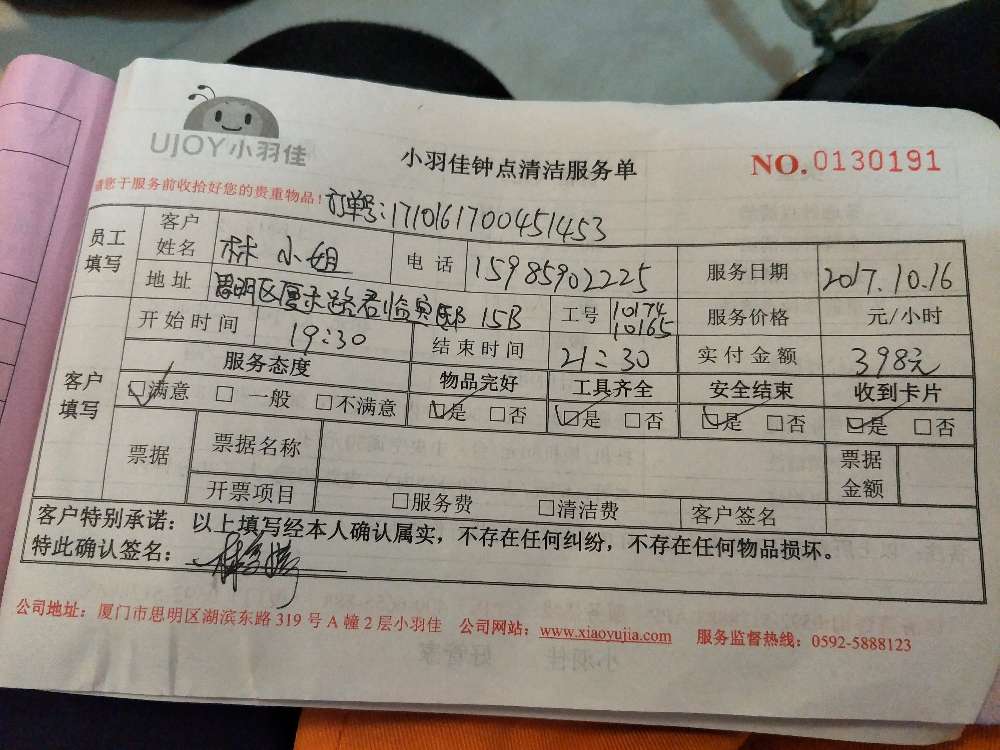 UJOY小羽佳
小羽佳钟点清洁服务单
NO.0130191
请您于服务前收拾好您的贵重物品!
订单号:1710161700451453
员工填写 客户姓名 林小姐 电话 15985902225 服务日期 2017.10.16
地址 思明区厦禾路君临宾邸15B 工号 10174 10165 服务价格 元/小时
开始时间 19:30 结束时间 21:30 实付金额 398元
客户填写 服务态度 物品完好 工具齐全 安全结束 收到卡片
☑满意 □一般 □不满意 ☑是 □否 ☑是 □否 ☑是 □否 ☑是 □否
票据 票据名称 票据金额
开票项目 □服务费 □清洁费 客户签名
客户特别承诺:以上填写经本人确认属实,不存在任何纠纷,不存在任何物品损坏。
特此确认签名:
公司地址:厦门市思明区湖滨东路319号A幢2层小羽佳 公司网站:www.xiaoyujia.com 服务监督热线:0592-5888123